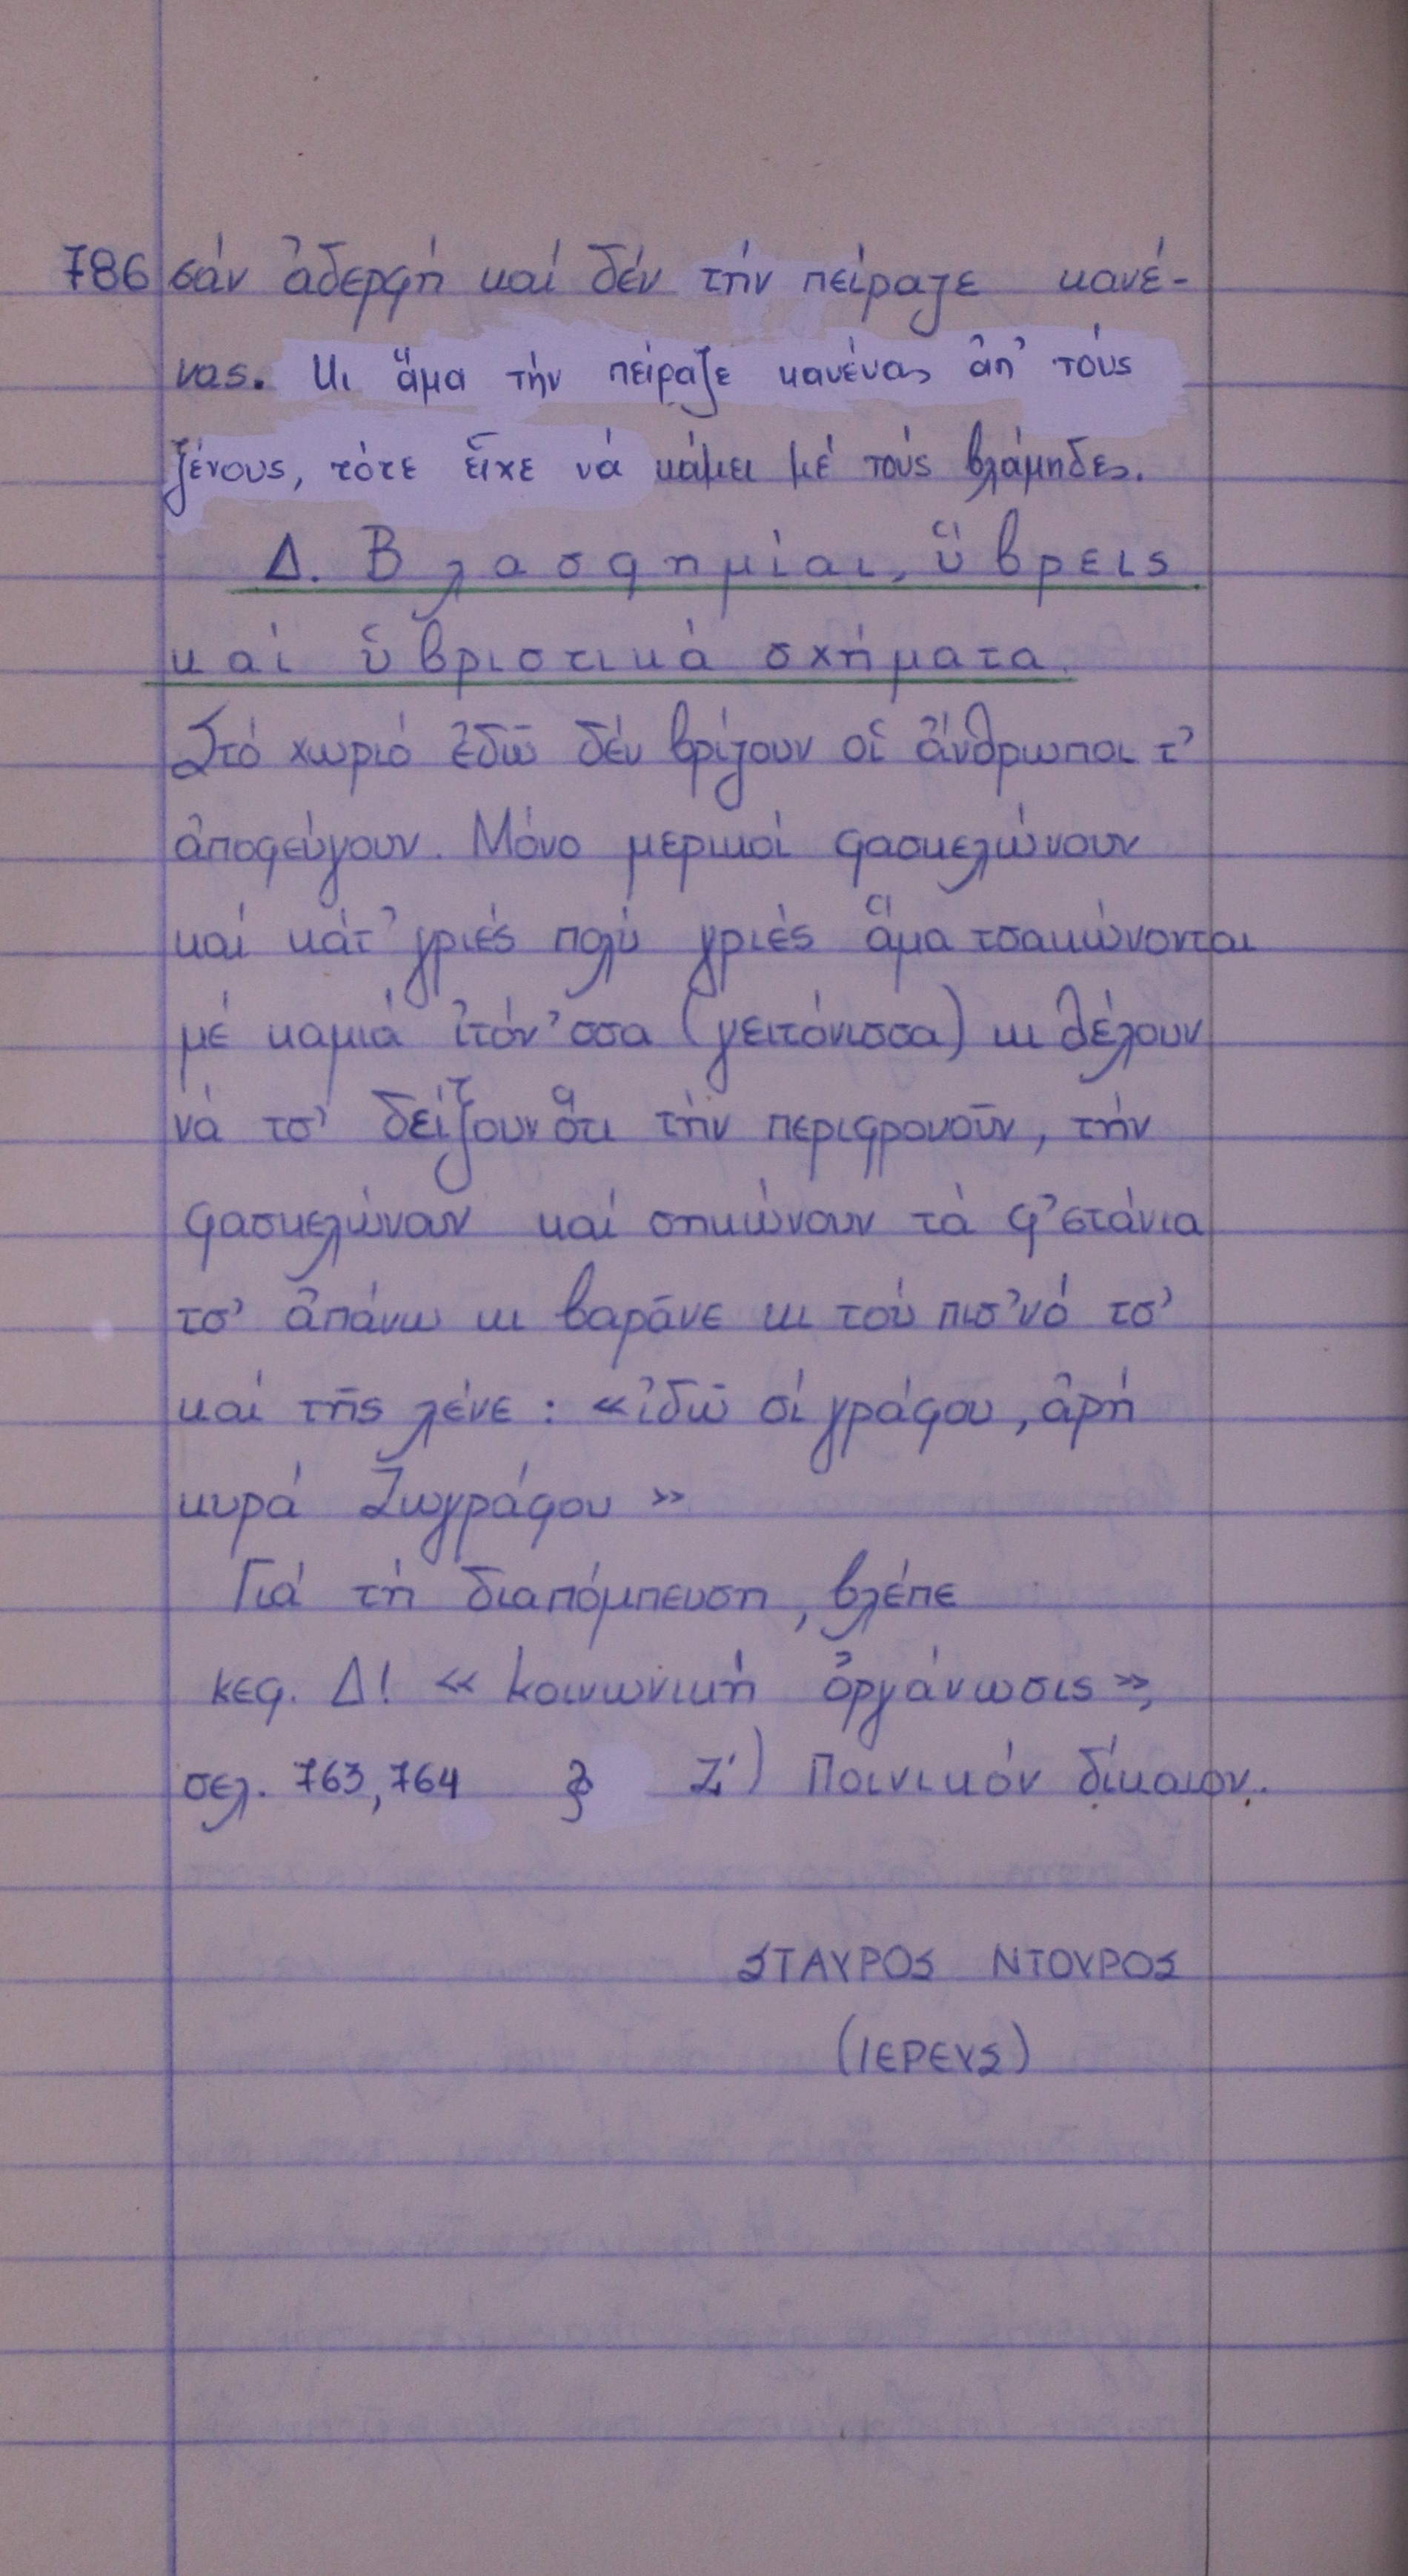 786 σάν ἀδερφή καί δέν τήν πείραζε κανέ-
νας. Κι ἅμα τήν πείραζε κανένας ἀπ' τούς
ξένους, τότε εἶχε νά κάμει μέ τούς βλάμηδες.
Δ. Βλασφημίαι, ὕβρεις
καί ὑβριστικά σχήματα.
Στό χωριό ἐδῶ δέν βρίζουν οἱ ἄνθρωποι τ'
ἀποφεύγουν. Μόνο μερικοί φασκελώνουν
καί κάτ' γριές πολύ γριές ἅμα τσακώνονται
μέ καμιά ἰτόν'σσα (γειτόνισσα) κι θέλουν
νά τσ' δείξουν ὅτι τήν περιφρονοῦν, τήν
φασκελώνουν καί σηκώνουν τά φ'στάνια
τσ' ἀπάνω κι βαρᾶνε κι τού πισ'νό τσ'
καί τῆς λένε : «ἰδῶ σί γράφου, ἀρή
κυρά Ζωγράφου »
Γιά τή διαπόμπευση, βλέπε
κεφ. Δ! « κοινωνική ὀργάνωσις »,
σελ. 763, 764 § Ζ') Ποινικόν δίκαιον.
ΣΤΑΥΡΟΣ ΝΤΟΥΡΟΣ
(ΙΕΡΕΥΣ)